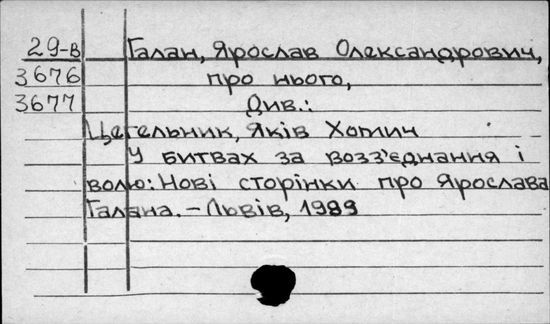 29-в Галан, Ярослав Олександрович,
3676 про нього,
3677 Див.:
Цегельник, Яків Хомич
У битвах за возз'єднання і
волю: Нові сторінки про Ярослава
Галана. – Львів, 1989